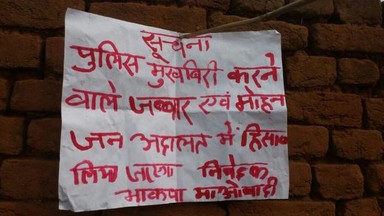 सूचना
पुलिस मुखबिरी करने
वाले जब्बार एवं मोहन
जन अदालत में हिसाब
लिया जाएगा निवेदक
भाकपा माओवादी